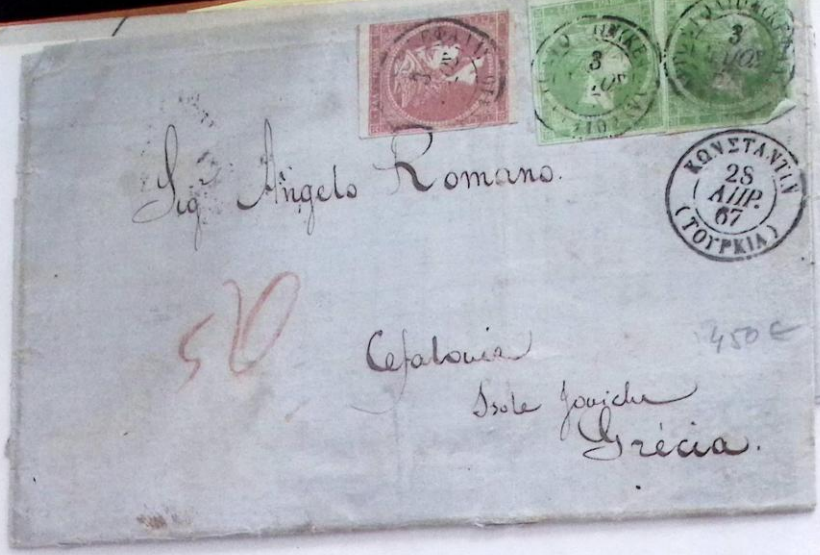 3
3
ΚΩΝΣΤΑΝΤΙΝ
28
ΑΠΡ.
67
(ΤΟΥΡΚΙΑ)
Sig Angelo Romano.
50
450 €
Cefalonia
Isole Joniche
Grécia.